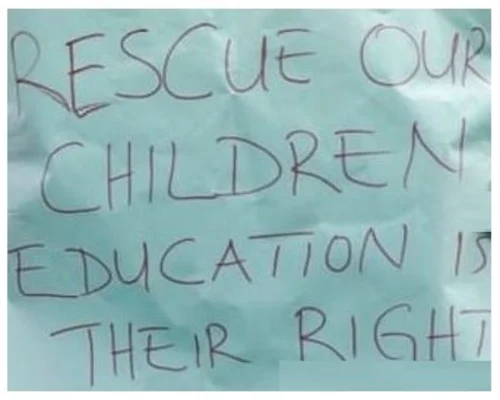 RESCUE OUR
CHILDREN.
EDUCATION IS
THEIR RIGHT